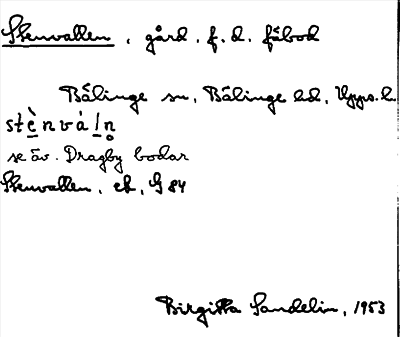 Stenvallen, gård, f.d. fäbod
Bälinge sn, Bälinge hd, Upps. l.
stènvàln̥
se äv. Dragby bodar
Stenvallen, ek, G 84
Birgitta Sandelin, 1953